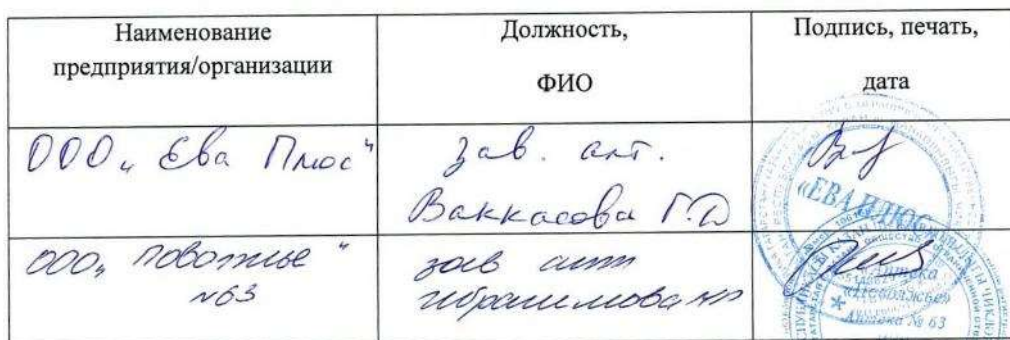 Наименование
предприятия/организации
Должность,
ФИО
Подпись, печать,
дата
ООО „Ева Плюс"
Зав. апт.
Ваккасова Г.Д
«ЕВА ПЛЮС»
ООО „Поволжье"
№63
зав апт
Ибрагимова
Аптека
«Поволжье»
Аптека № 63